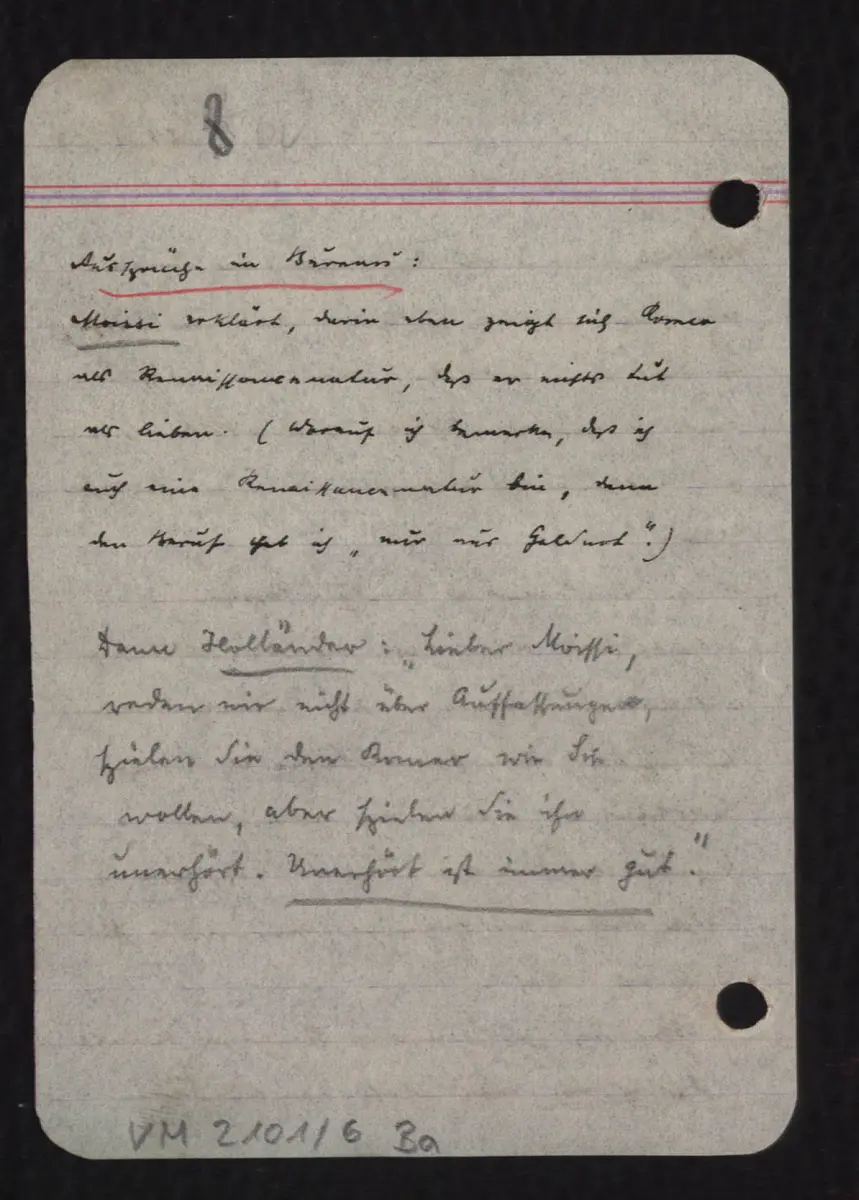 8
Aussprüche im Bureau:
Moissi erklärt, darin eben zeigt sich Romeo
als Renaissancenatur, daß er nichts tut
als lieben. (Worauf ich bemerke, daß ich
auch eine Renaissancenatur bin, denn
den Beruf hab ich „nur aus Geldnot“.)
Dann Holländer: „Lieber Moissi,
reden wir nicht über Auffassungen,
spielen Sie den Romeo wie Sie
wollen, aber spielen Sie ihn
unerhört. Unerhört ist immer gut."
VM 2101/6 Ba